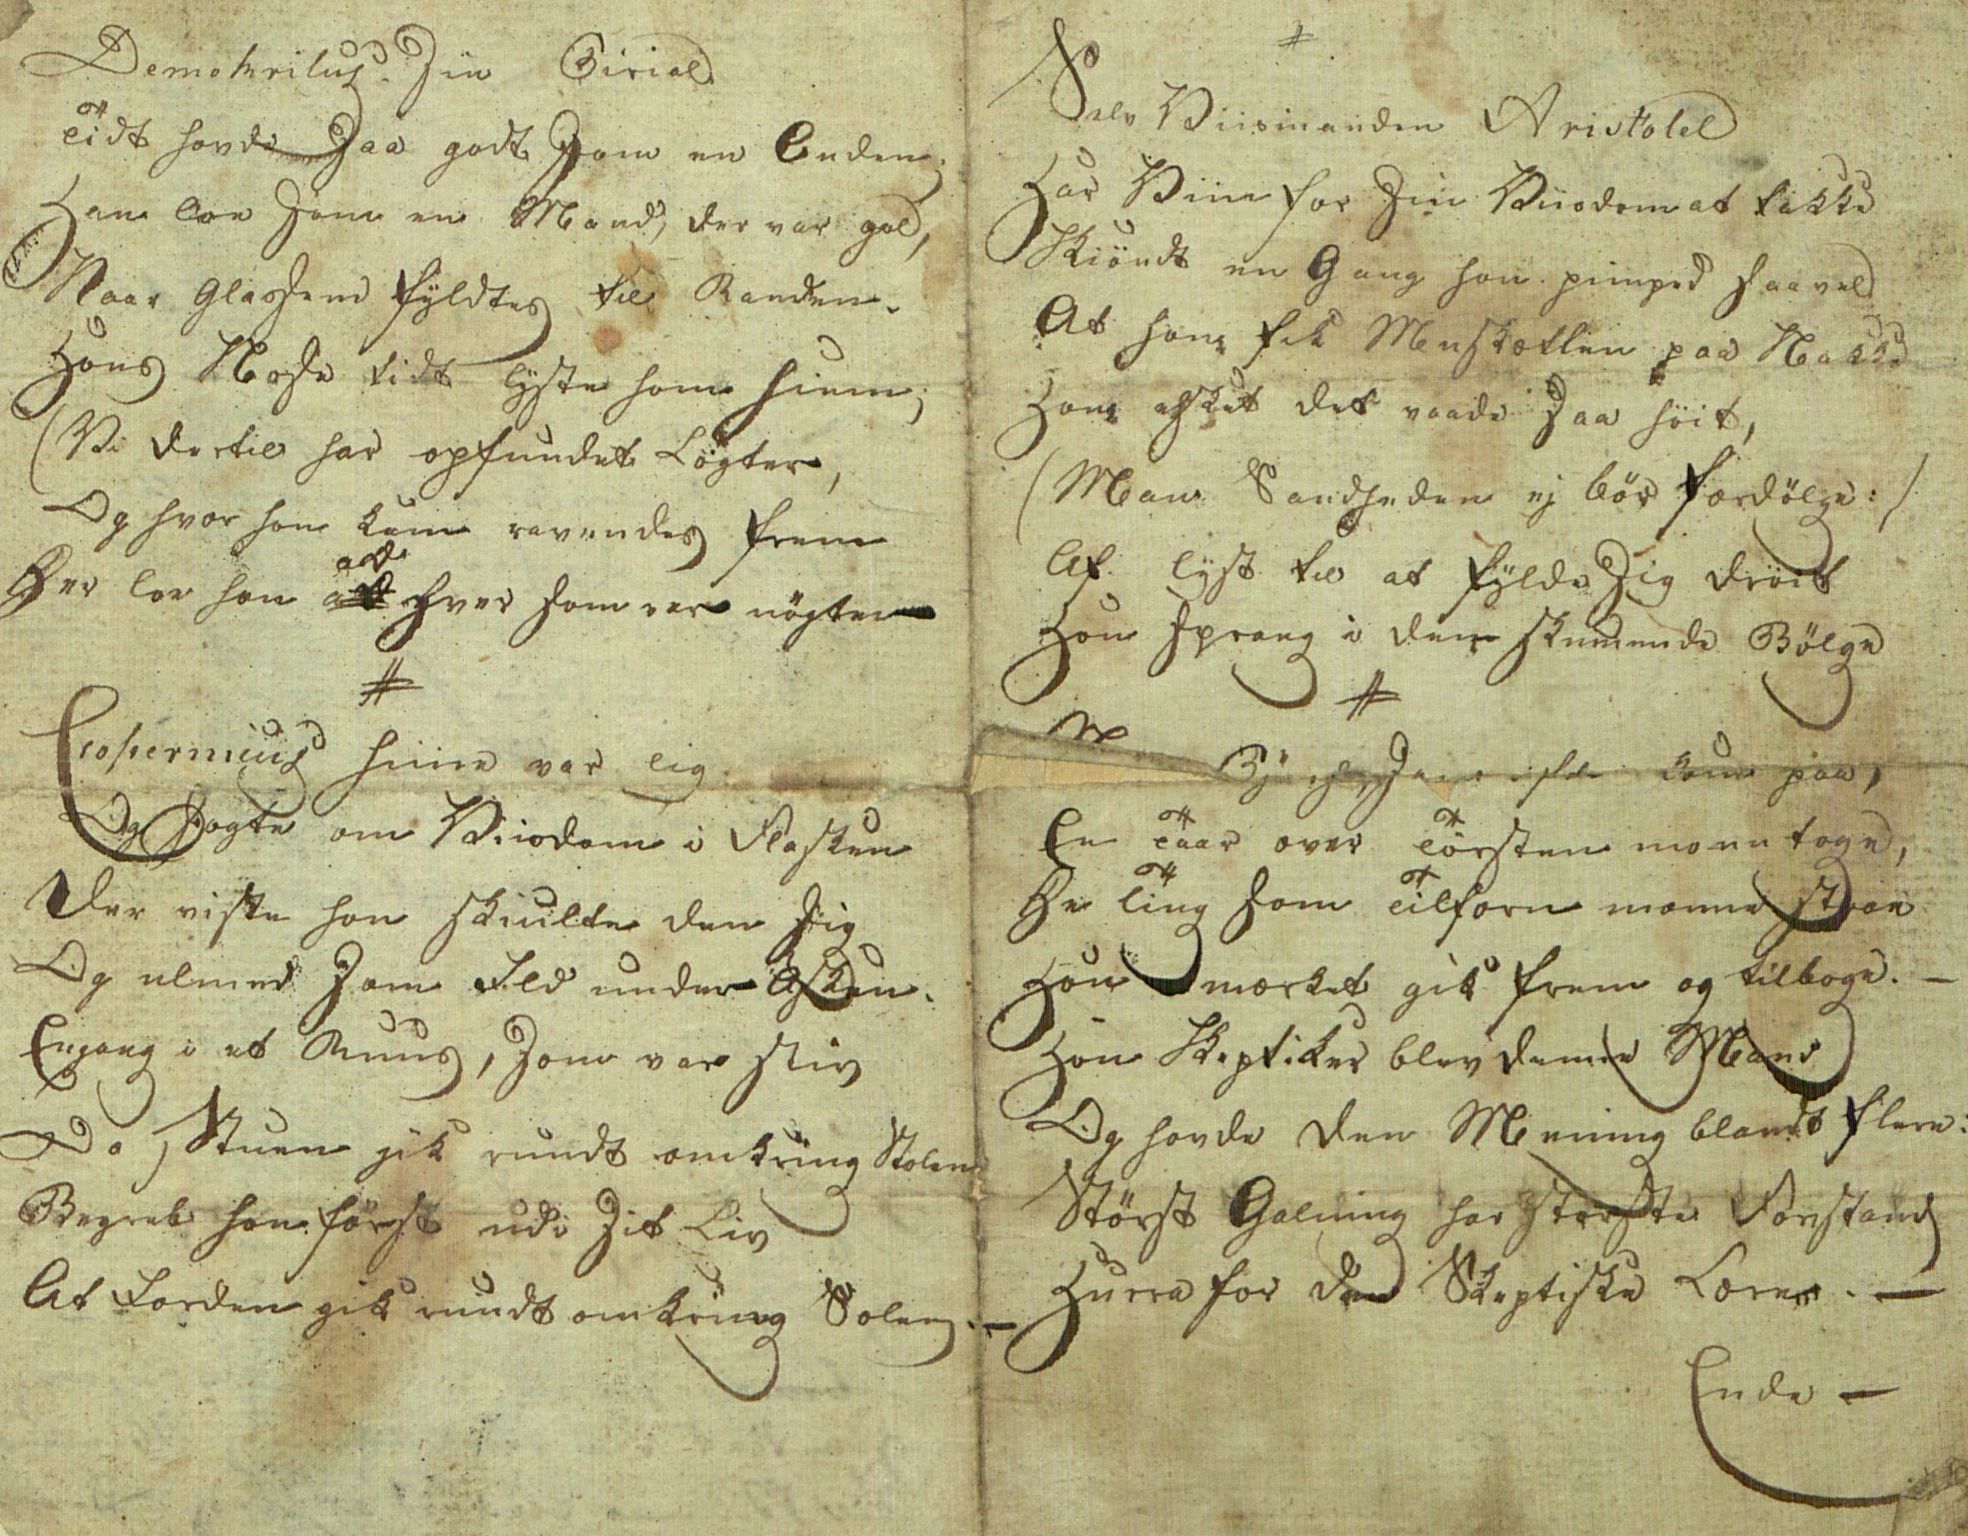 Demokritus Sin Viisdom
tidt havde Saa godt Som en Anden;
Han loe Som en Mand, der var gal,
Naar Glassene fyldtes til Randen.
Hans Næse tidt lyste ham hiem,
(Vi dertil har opfundet Løgter,
Og hvor han kom ravendes frem
Der loe han ad hver Som var nögter
#
Copernicus hiin var lig
Og Søgte om Viisdom i Flasken
Der viste han skiulte den Sig
Og ulmed Som Ild under Asken.
Engang i et Ruus, Som var stiv
Da Stuen gik rundt omkring Stolen
Begreb han först udi Sit Liv
At Jorden gik rundt omkring Solen. —
#
Selv Viismanden Aristotel
Har Viin for Sin Viisdom at takke
Skiöndt en Gang han pimped Saavel
At han fik Menskætten paa Nakke
Han elsket det vaade Saa höit,
(Man Sandheden ej bör fordölge:/
Af lyst til at fylde Sig dröit
Han Sprang i den skummende Bölge
#
kom paa,
En taar over törsten mon tage,
De ting Som tilforn monne staae
Han mærket gik frem og tilbage. —
Han Skeptiker blev denne Mand
Og havde den Mening blandt flere:
Störst Galning har störste Forstand
Hurra for den Skeptiske Lære. —
Ende —